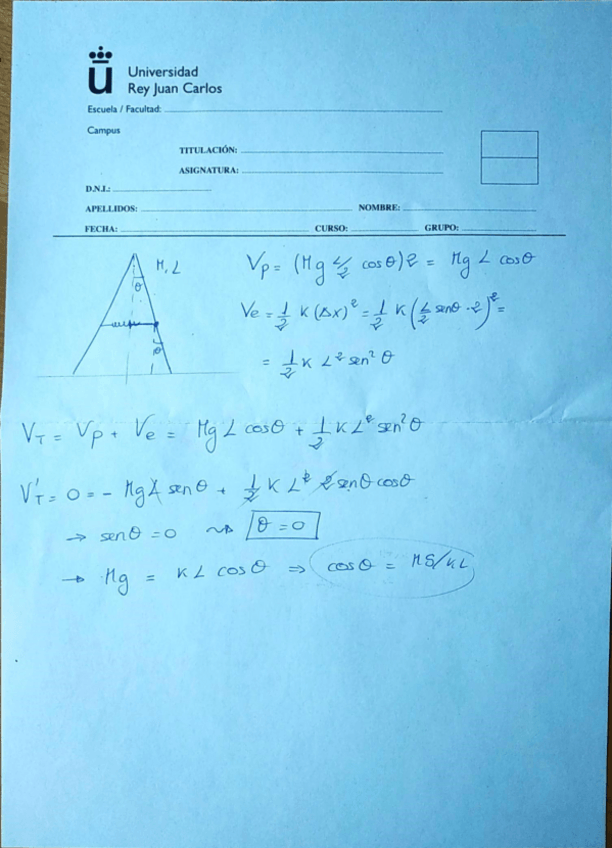 Universidad
Rey Juan Carlos
Escuela / Facultad:
Campus
TITULACIÓN:
ASIGNATURA:
D.N.I.:
APELLIDOS: NOMBRE:
FECHA: CURSO: GRUPO:
M, L
θ
θ
Vp = (Mg L/2 cosθ)2 = Mg L cosθ
Ve = 1/2 K (Δx)² = 1/2 K (L/2 senθ · 2)² =
= 1/2 K L² sen² θ
V_T = Vp + Ve = Mg L cosθ + 1/2 K L² sen²θ
V'_T = 0 = - Mg L senθ + 1/2 K L² 2 senθ cosθ
→ senθ = 0 ⇝ θ = 0
→ Mg = K L cosθ ⇒ cosθ = MG/KL